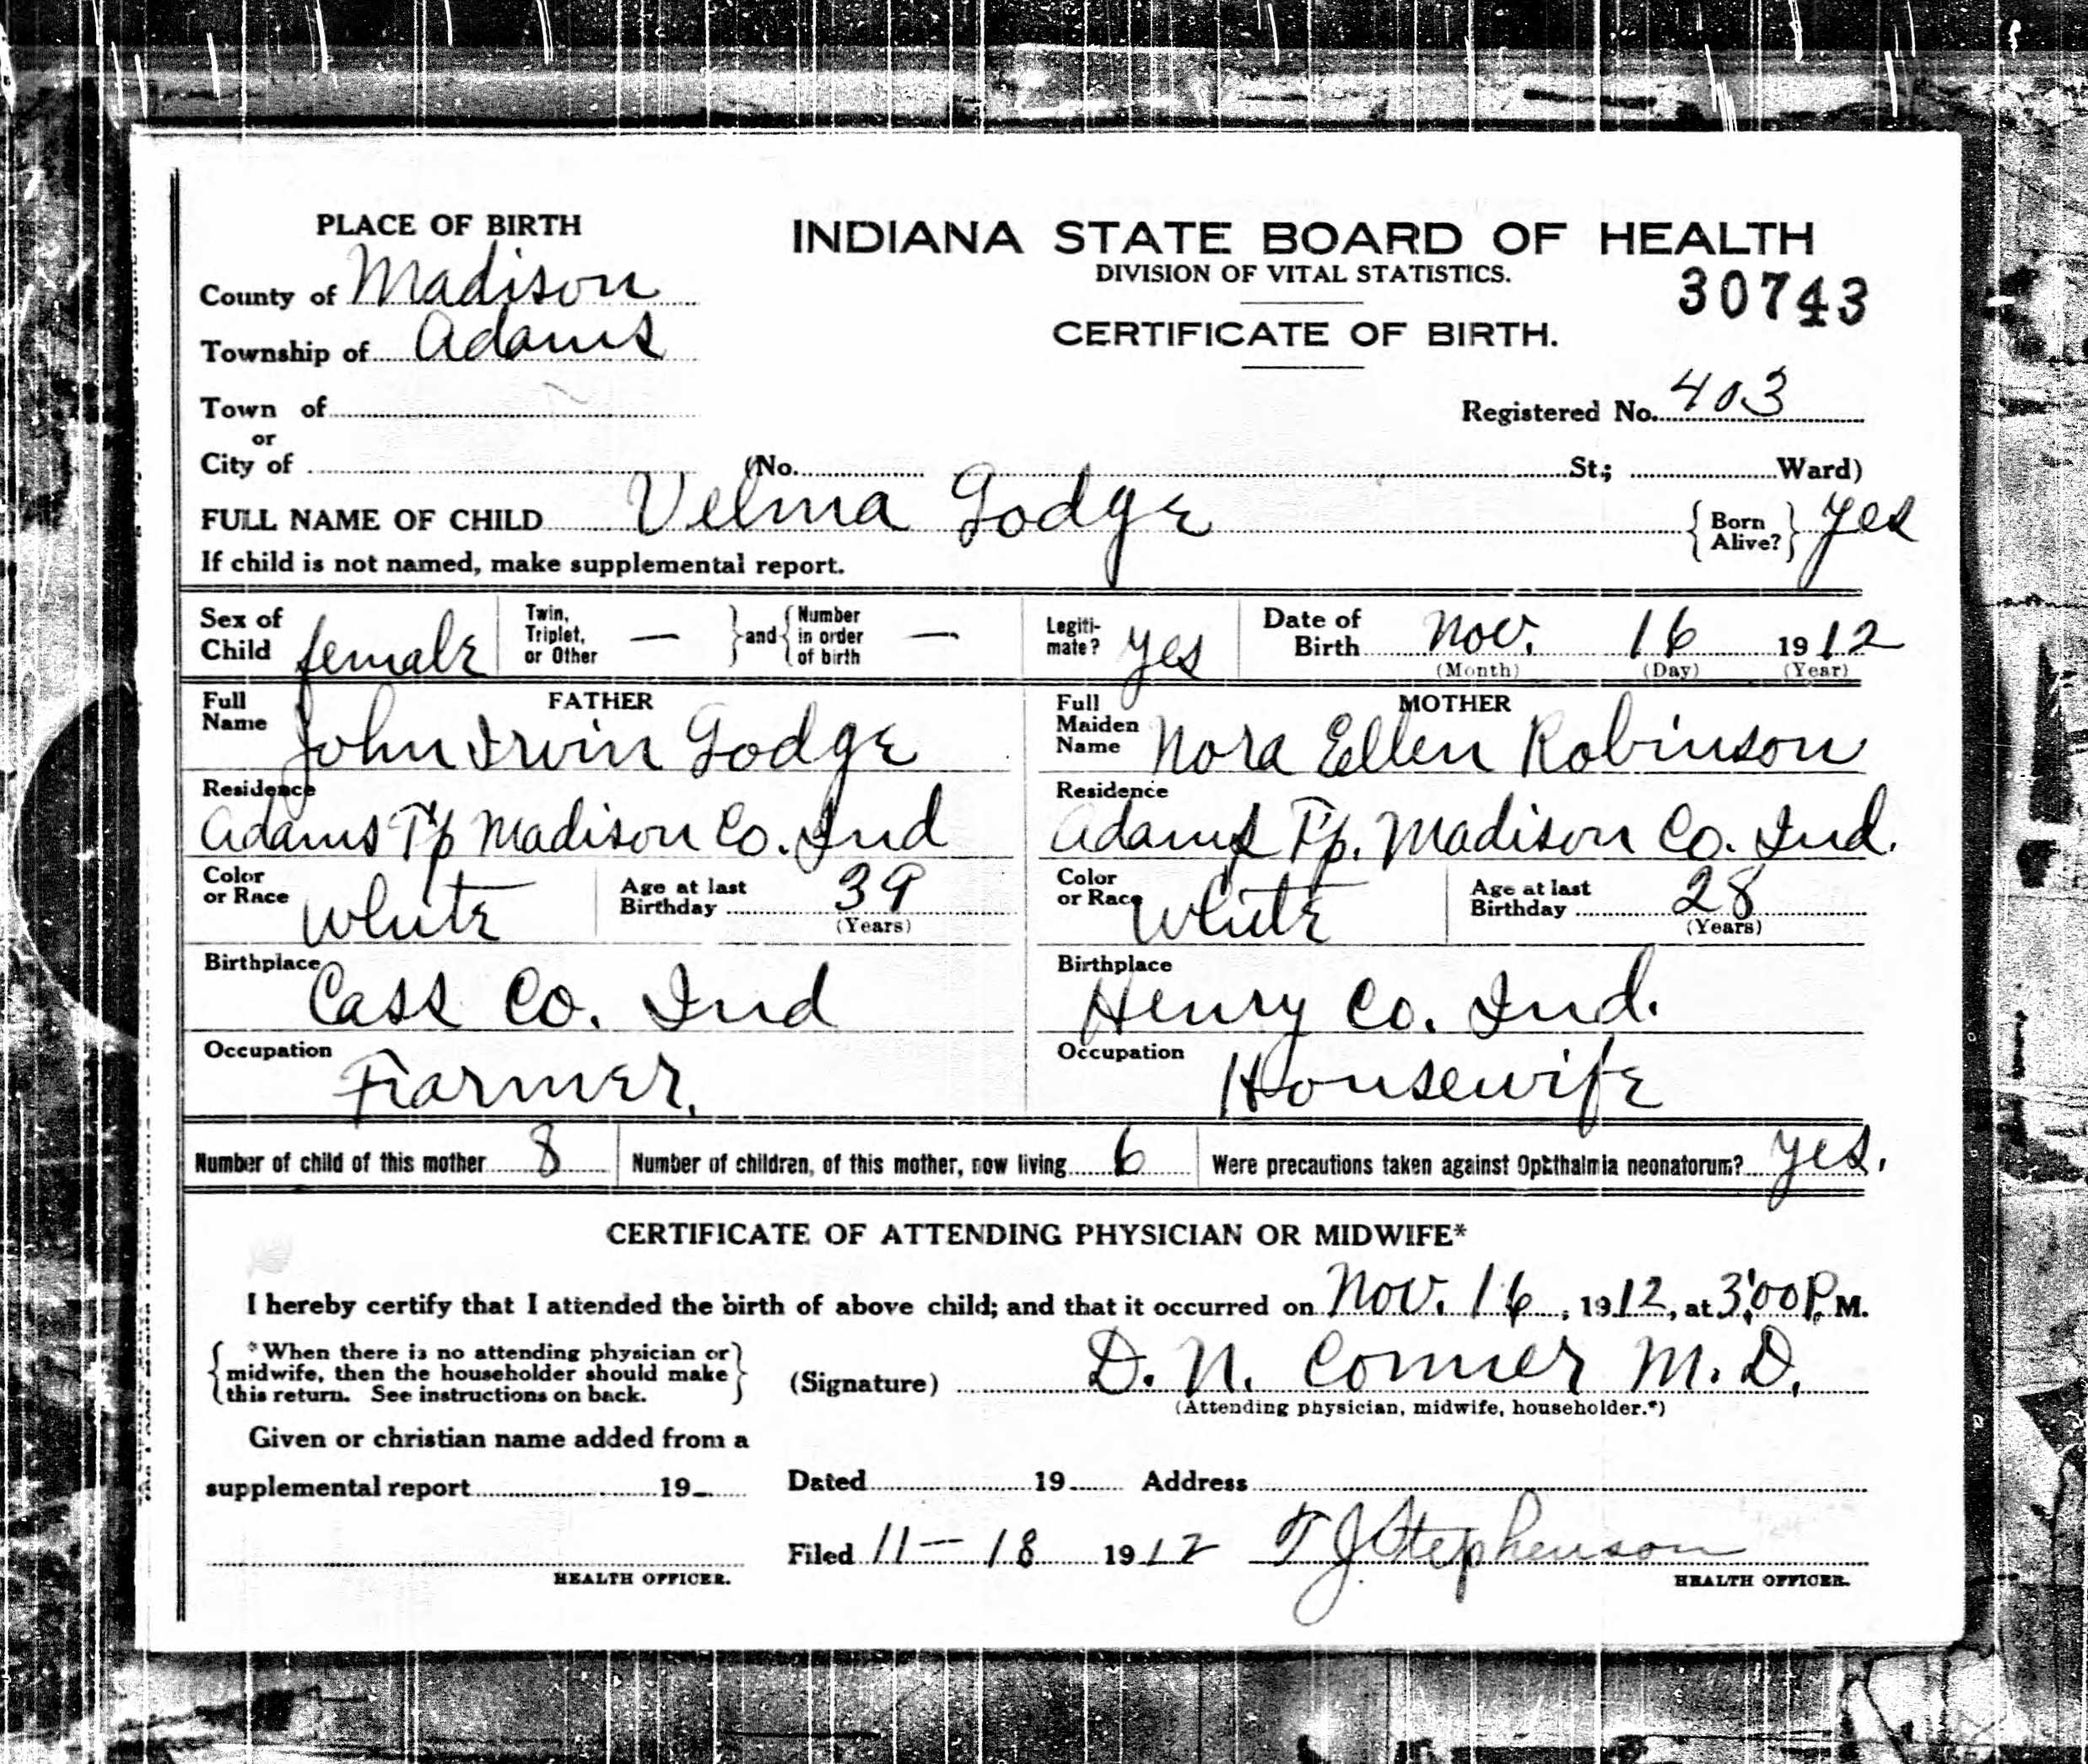 PLACE OF BIRTH
INDIANA STATE BOARD OF HEALTH
DIVISION OF VITAL STATISTICS.
30743
CERTIFICATE OF BIRTH.
County of Madison
Township of Adams
Town of
or
City of
Registered No. 403
(No. St.; Ward)
FULL NAME OF CHILD Velma Godge
{ Born Alive? } Yes
If child is not named, make supplemental report.
Sex of Child female
Twin, Triplet, or Other — } and { Number in order of birth —
Legiti-mate? Yes
Date of Birth Nov. 16 1912
(Month) (Day) (Year)
FATHER
Full Name John Irvin Godge
Residence
Adams Tp Madison Co. Ind
Color or Race White
Age at last Birthday 39
(Years)
Birthplace
Cass Co. Ind
Occupation
Farmer.
MOTHER
Full Maiden Name Nora Ellen Robinson
Residence
Adams Tp. Madison Co. Ind.
Color or Race White
Age at last Birthday 28
(Years)
Birthplace
Henry Co. Ind.
Occupation
Housewife
Number of child of this mother 8
Number of children, of this mother, now living 6
Were precautions taken against Ophthalmia neonatorum? Yes.
CERTIFICATE OF ATTENDING PHYSICIAN OR MIDWIFE*
I hereby certify that I attended the birth of above child; and that it occurred on Nov. 16, 1912, at 3:00 P. M.
{ *When there is no attending physician or
midwife, then the householder should make
this return. See instructions on back. }
(Signature) D. N. Conner M. D.
(Attending physician, midwife, householder.*)
Given or christian name added from a
supplemental report 19
HEALTH OFFICER.
Dated 19 Address
Filed 11-18 1912 T J Stephenson
HEALTH OFFICER.